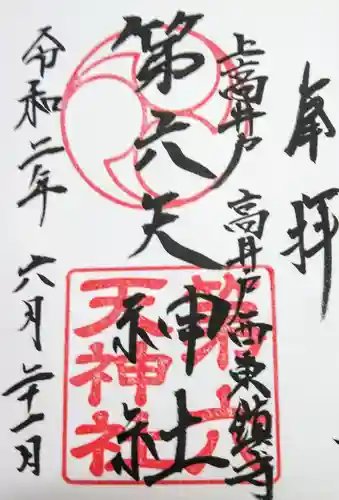 奉拝
上高井戸
高井戸西東鎮守
第六天神社
第六天神社
令和二年
六月二十一日